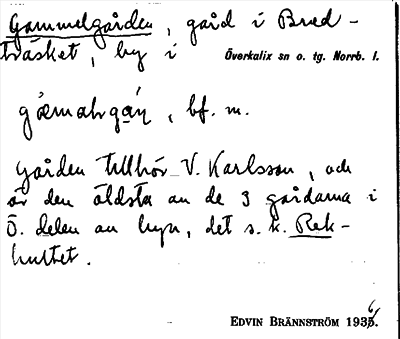 Gammelgården, gård i Bred-
träsket, by i Överkalix sn o. tg. Norrb. l.
gæmalrgạń, bf. m.
Gården tillhör V. Karlsson, och
är den äldsta av de 3 gårdarna i
Ö. delen av byn, det s. k. Rek-
hultet.
EDVIN BRÄNNSTRÖM 1936.